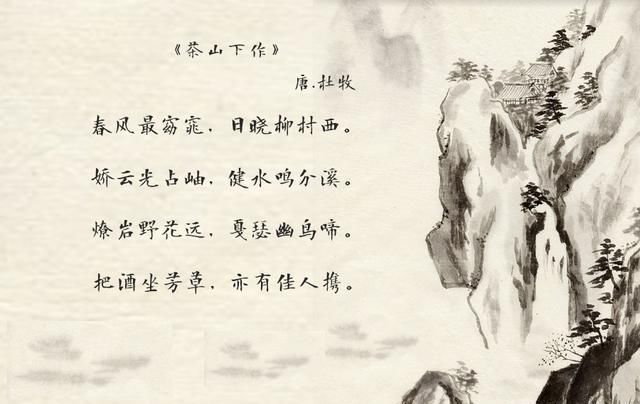 《茶山下作》
唐.杜牧
春风最窈窕，日晓柳村西。
娇云光占岫，健水鸣分溪。
燎岩野花远，戛瑟幽鸟啼。
把酒坐芳草，亦有佳人携。